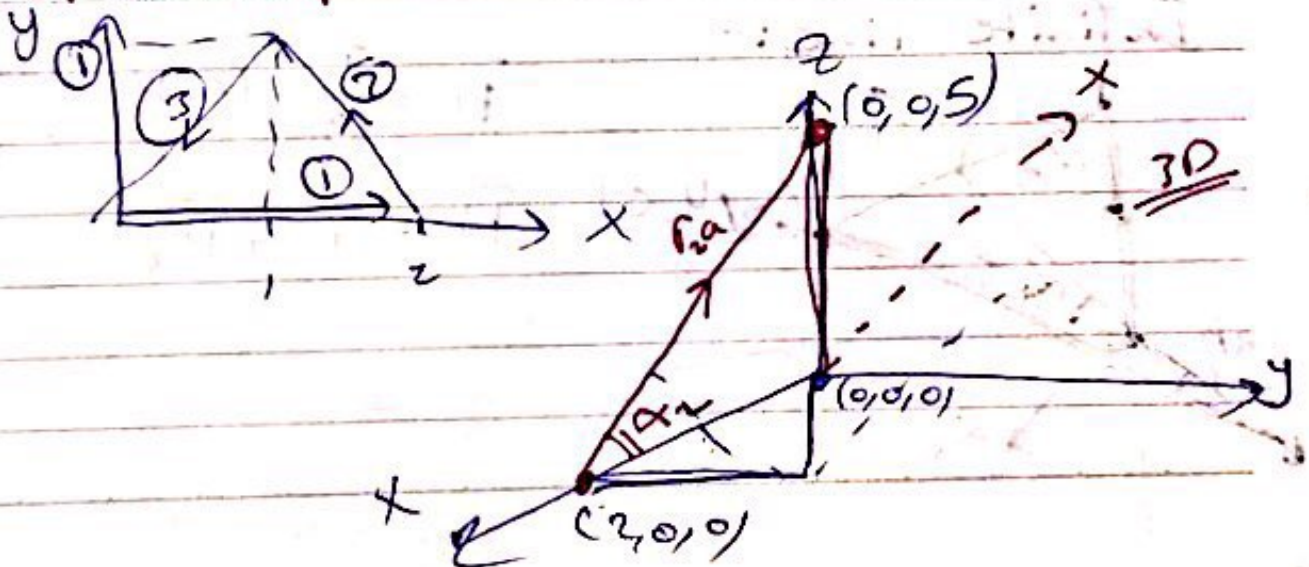 y
①
③
②
①
x
1
2
z
(0,0,5)
x
3D
r₂a
α₂
(0,0,0)
y
x
(2,0,0)